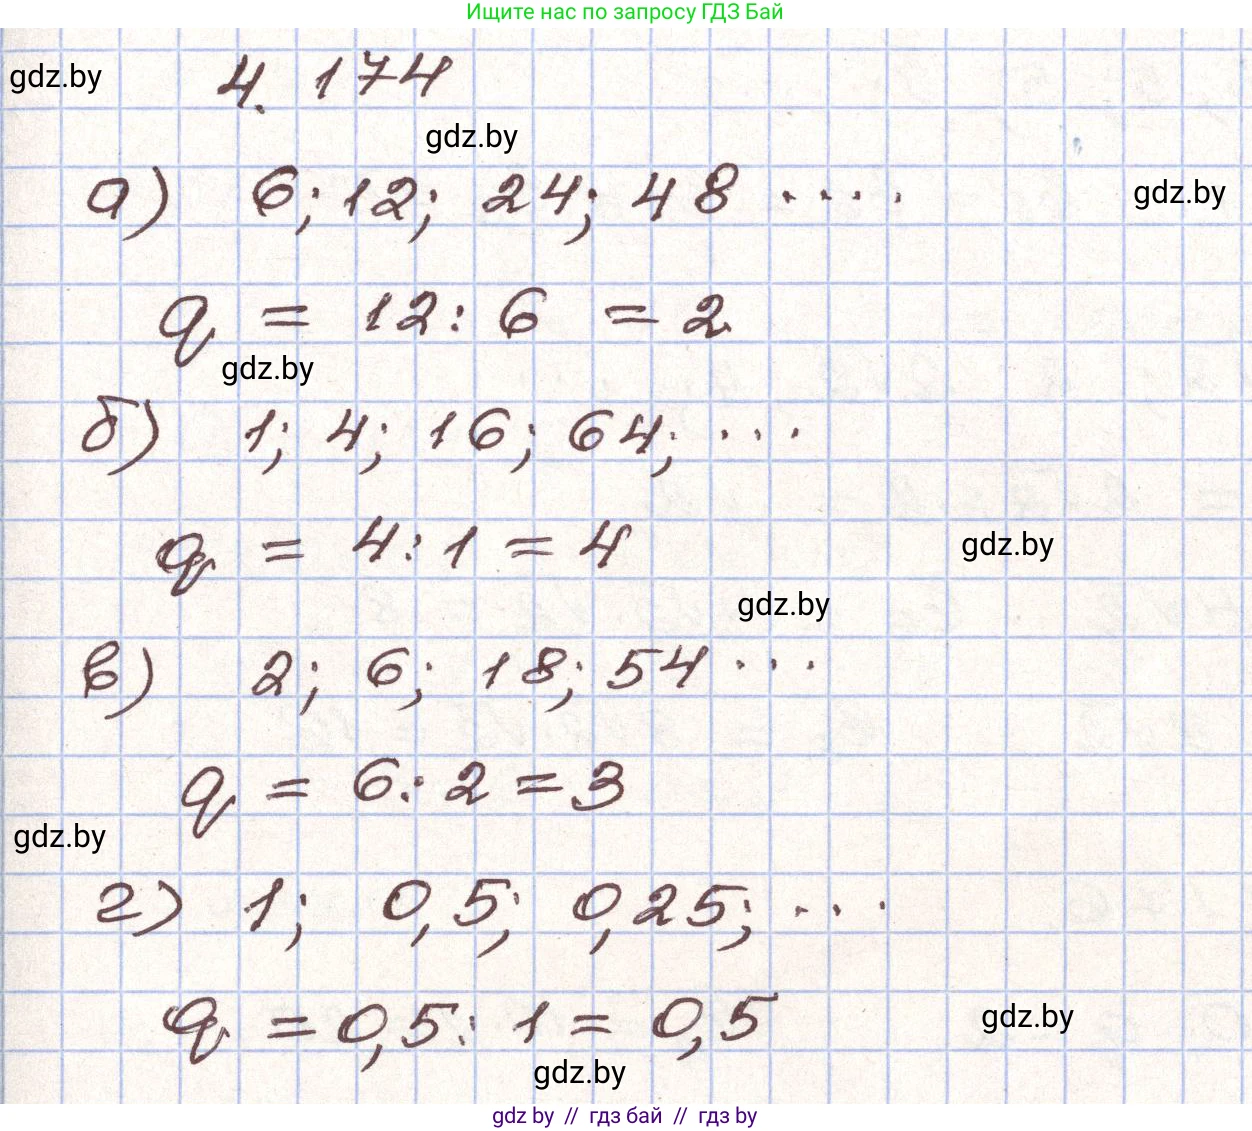 Ищите нас по запросу ГДЗ Бай
gdz.by
4. 174
gdz.by
а) 6; 12; 24; 48 ....
gdz.by
q = 12 : 6 = 2
gdz.by
б) 1; 4; 16; 64; ...
q = 4 : 1 = 4
gdz.by
gdz.by
в) 2; 6; 18; 54 ...
q = 6 : 2 = 3
gdz.by
г) 1; 0,5; 0,25; ...
q = 0,5 : 1 = 0,5
gdz.by
gdz.by
gdz by // гдз бай // гдз by